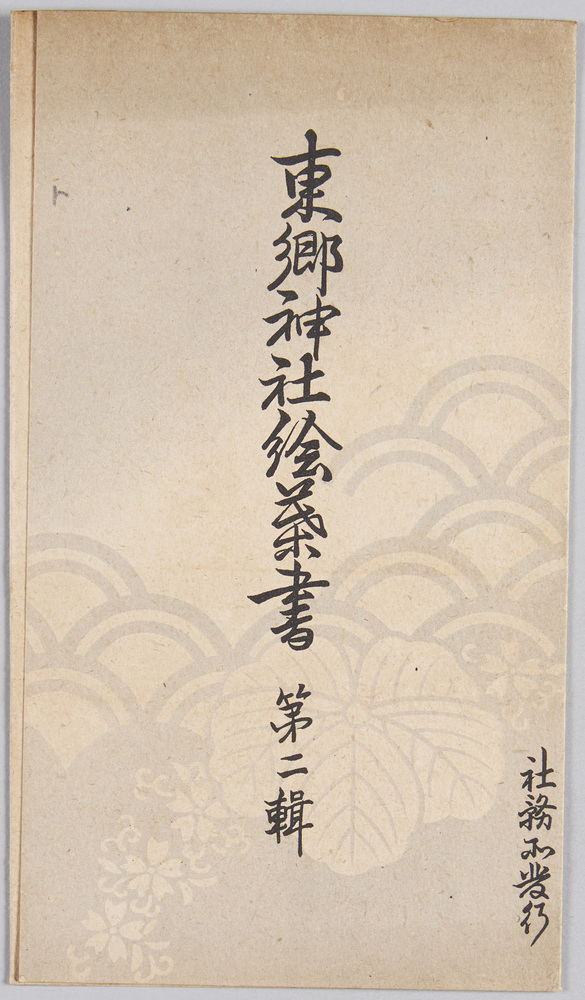 東郷神社絵葉書 第二輯
社務所発行
ト